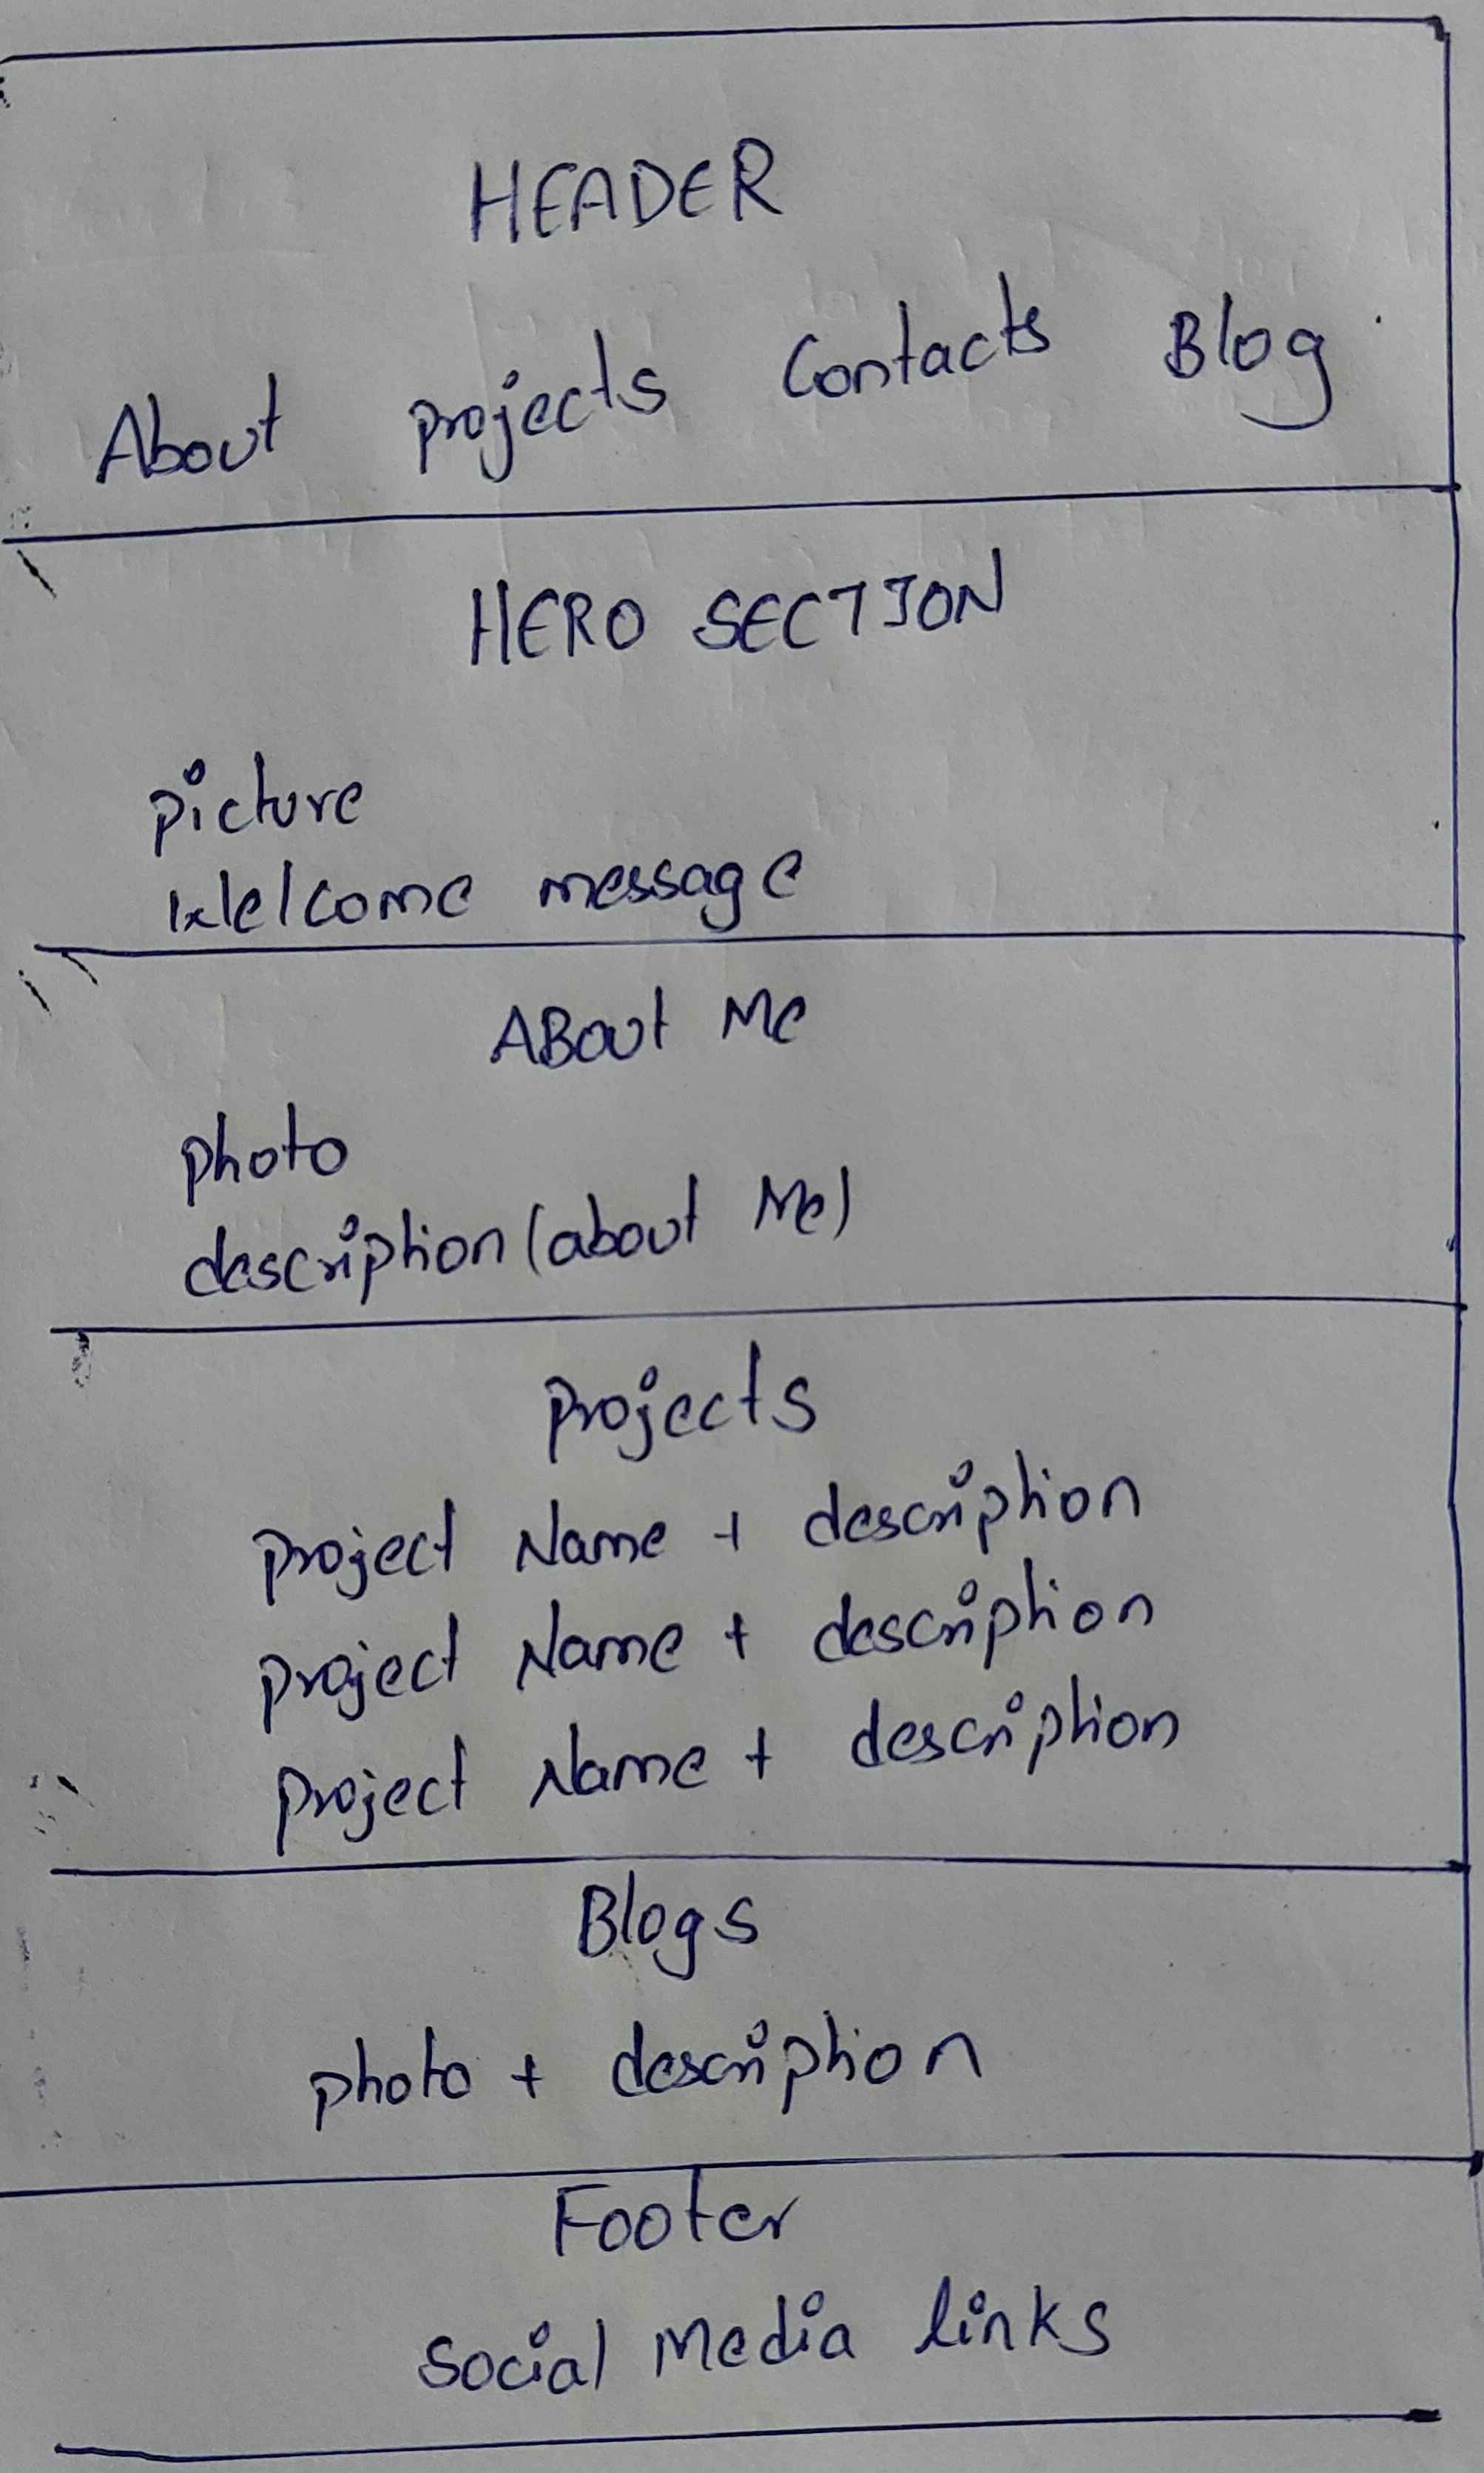 HEADER
About projects Contacts Blog
HERO SECTION
picture
Welcome message
ABout Me
photo
description (about Me)
projects
project Name + description
project Name + description
project Name + description
Blogs
photo + description
Footer
Social Media links